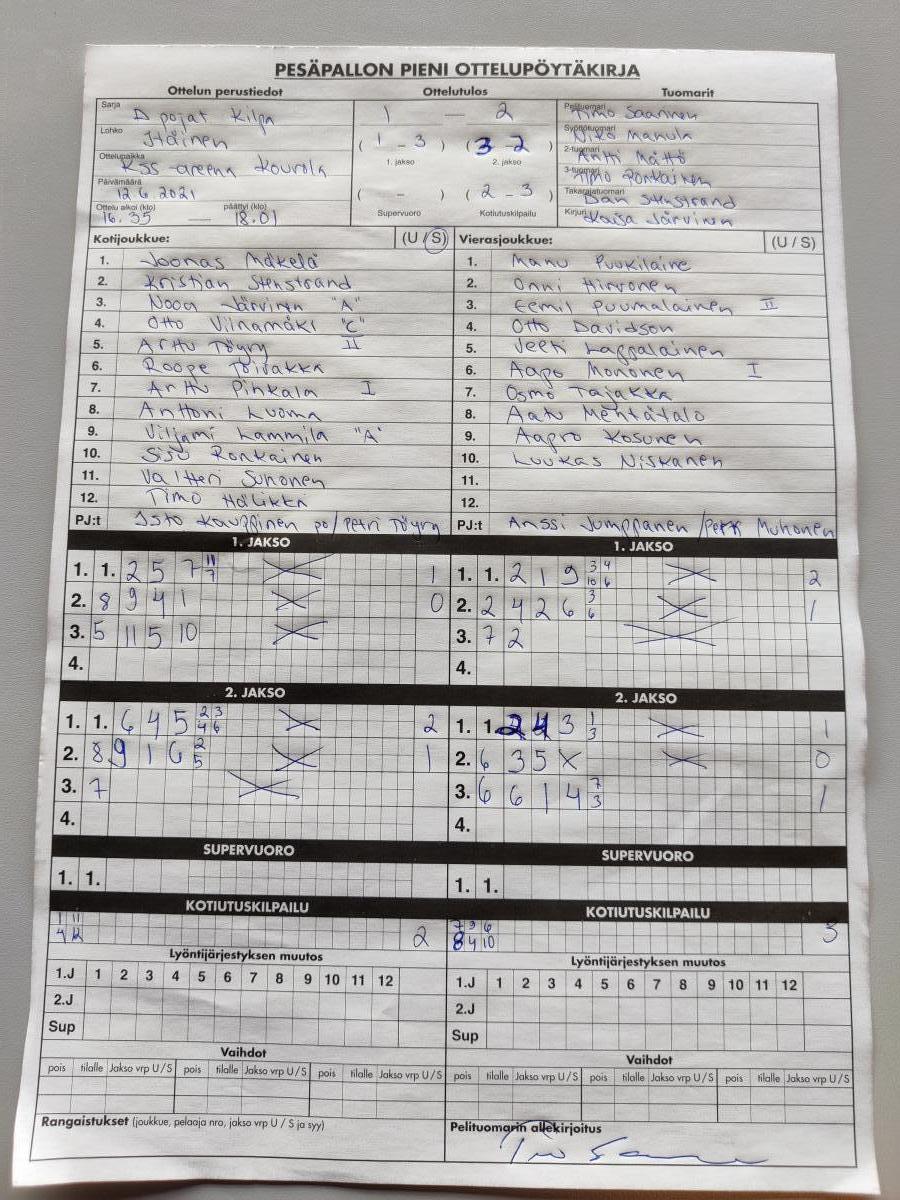 PESÄPALLON PIENI OTTELUPÖYTÄKIRJA
Ottelun perustiedot Ottelutulos Tuomarit
Sarja D pojat Kilpa 1 — 2 Pelituomari Timo Saarinen
Lohko Itäinen (1 - 3) (3 - 2) Syöttötuomari Niko Manula
1. jakso 2. jakso
Ottelupaikka KSS-areena Kouvola 2-tuomari Antti Mättö
Päivämäärä 12.6.2021 ( - ) (2 - 3) 3-tuomari Timo Ronkainen
Ottelu alkoi (klo) 16.35 — päättyi (klo) 18.01 Takarajatuomari Dan Stenstrand
Supervuoro Kotiutuskilpailu Kirjuri Kaisa Järvinen
Kotijoukkue: (U / S) Vierasjoukkue: (U / S)
1. Joonas Mäkelä 1. Manu Puukilaine
2. Kristian Stenstrand 2. Onni Hirvonen
3. Nooa Järvinen "A" 3. Eemil Puumalainen II
4. Otto Viinamäki "C" 4. Otto Davidson
5. Arttu Töyry II 5. Veeti Lappalainen
6. Roope Toivakka 6. Aapo Mononen I
7. Arttu Pihkala I 7. Osmo Tajakka
8. Anttoni Luoma 8. Aatu Mentätalo
9. Viljami Lammila "A" 9. Aapro Kosunen
10. Sisu Ronkainen 10. Luukas Niskanen
11. Valtteri Suhonen 11.
12. Timo Hälikkä 12.
PJ:t Isto Kauppinen po/Petri Töyry PJ:t Anssi Jumppanen / Muhonen
1. JAKSO 1. JAKSO
1. 1. 2 5 7 11 7 1 1. 1. 2 1 9 3 4 10 6 2
2. 8 9 4 1 0 2. 2 4 2 6 3 6 1
3. 5 11 5 10 3. 7 2
4. 4.
2. JAKSO 2. JAKSO
1. 1. 6 4 5 2 3 4 6 2 1. 1. 2 4 3 1 3 1
2. 8 9 1 6 2 5 1 2. 6 3 5 X 0
3. 7 3. 6 6 1 4 7 3 1
4. 4.
SUPERVUORO SUPERVUORO
1. 1. 1. 1.
KOTIUTUSKILPAILU KOTIUTUSKILPAILU
1 11 7 9 6
4 12 2 8 4 10 3
Lyöntijärjestyksen muutos Lyöntijärjestyksen muutos
1.J 1 2 3 4 5 6 7 8 9 10 11 12 1.J 1 2 3 4 5 6 7 8 9 10 11 12
2.J 2.J
Sup Sup
Vaihdot Vaihdot
pois tilalle Jakso vrp U/S pois tilalle Jakso vrp U/S pois tilalle Jakso vrp U/S pois tilalle Jakso vrp U/S
Rangaistukset (joukkue, pelaaja nro, jakso vrp U / S ja syy) Pelituomarin allekirjoitus